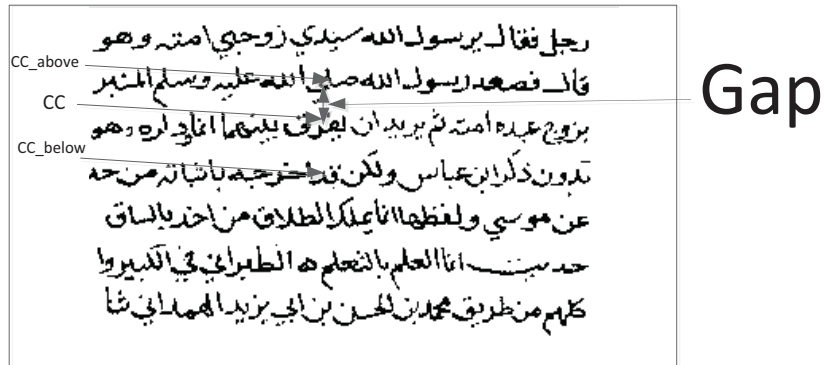 رجل فقال يرسول الله سيدي زوجني امته وهو
CC_above
قال فصعد رسول الله صلى الله عليه وسلم المنبر
Gap
CC
يزوج عبده امته ثم يريد ان يفرق بينهما انما
وهو
CC_below
بدون ذكر ابن عباس ولكن قد اخرجه باثباته من حد
عن موسي ولفظها انما يملك الطلاق من اخذ بالساق
حديث انما العلم بالتعلم ه الطبراني في الكبير وا
كلهم من طريق محمد بن الحسن بن ابي يزيد الهمداني ثنا